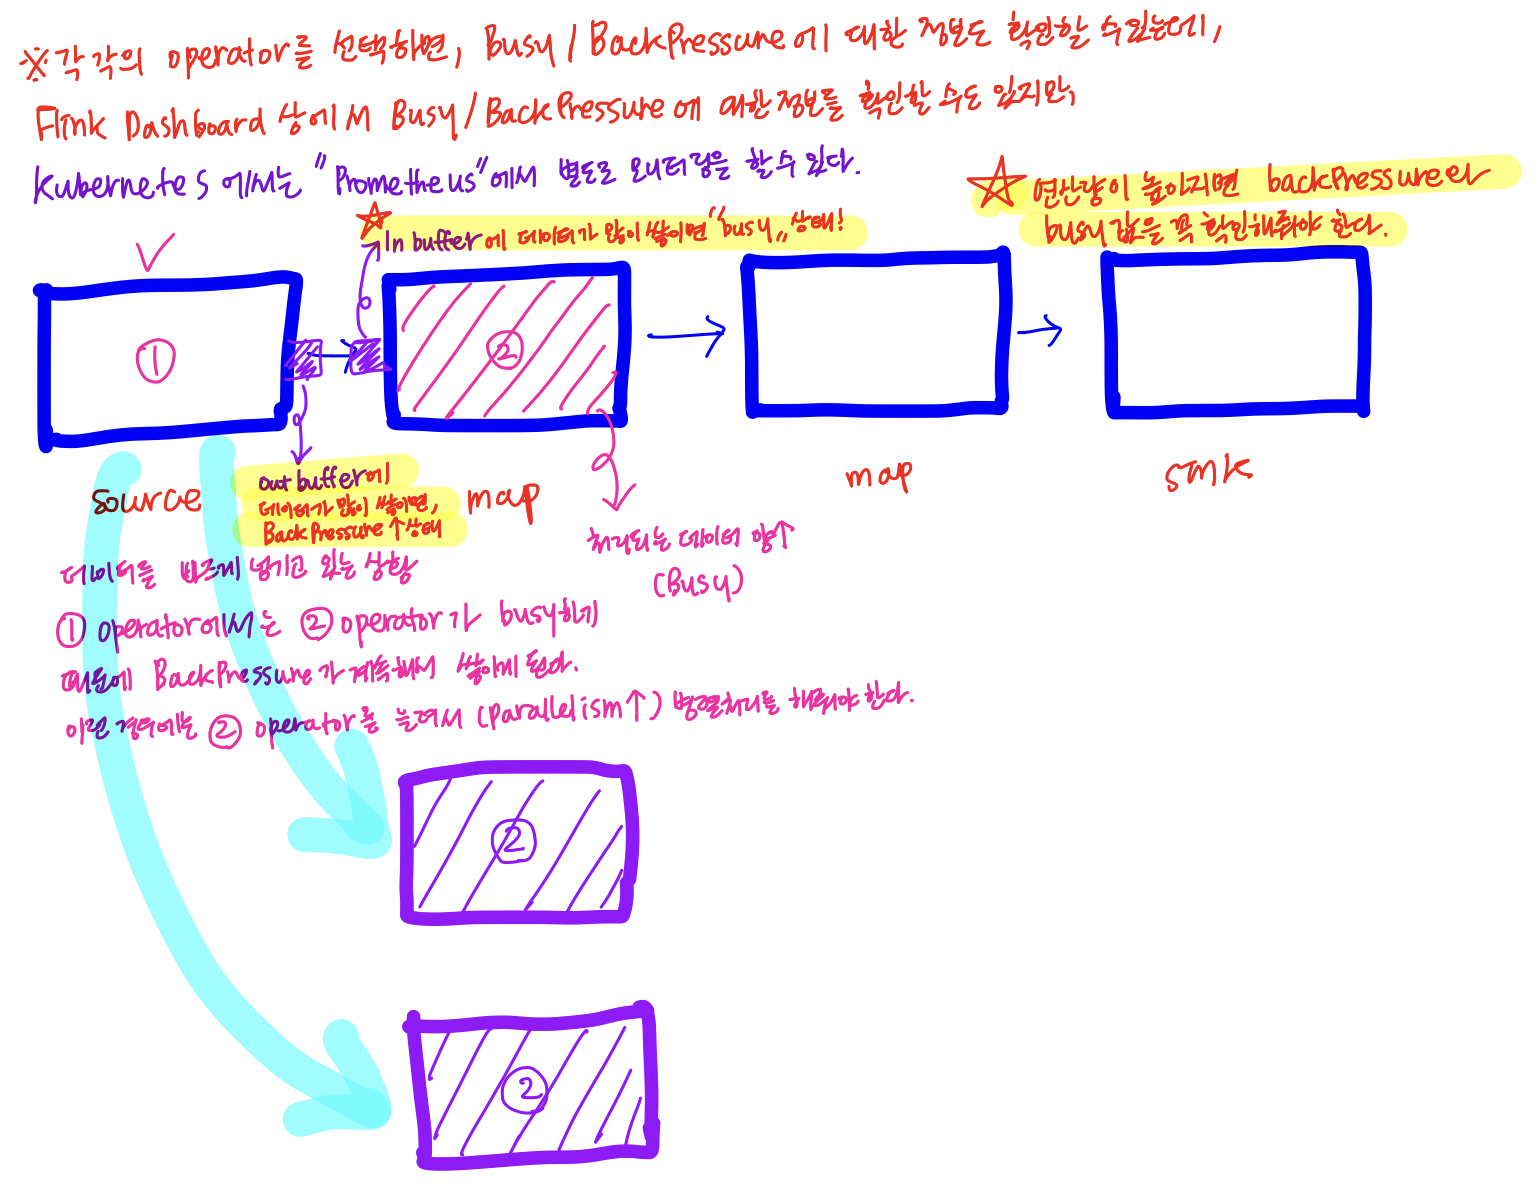 ※ 각각의 operator를 선택하면, Busy / BackPressure에 대한 정보도 확인할 수 있는데,
Flink Dashboard 상에서 Busy/BackPressure에 대한 정보를 확인할 수도 있지만,
Kubernetes 에서는 "Prometheus"에서 별도로 모니터링을 할 수 있다.
☆ 연산량이 높아지면 backPressure와
busy 값을 꼭 확인해줘야 한다.
☆ In buffer에 데이터가 많이 쌓이면 "busy" 상태!
①
②
out buffer에
데이터가 많이 쌓이면,
BackPressure ↑ 상태
source
map
map
sink
처리되는 데이터 양↑
(Busy)
데이터를 빠르게 넘기고 있는 상황
① operator에서는 ② operator가 busy하기
때문에 BackPressure가 계속해서 쌓이게 된다.
이런 경우에는 ② operator를 늘려서 (Parallelism↑) 병렬처리를 해줘야 한다.
②
②